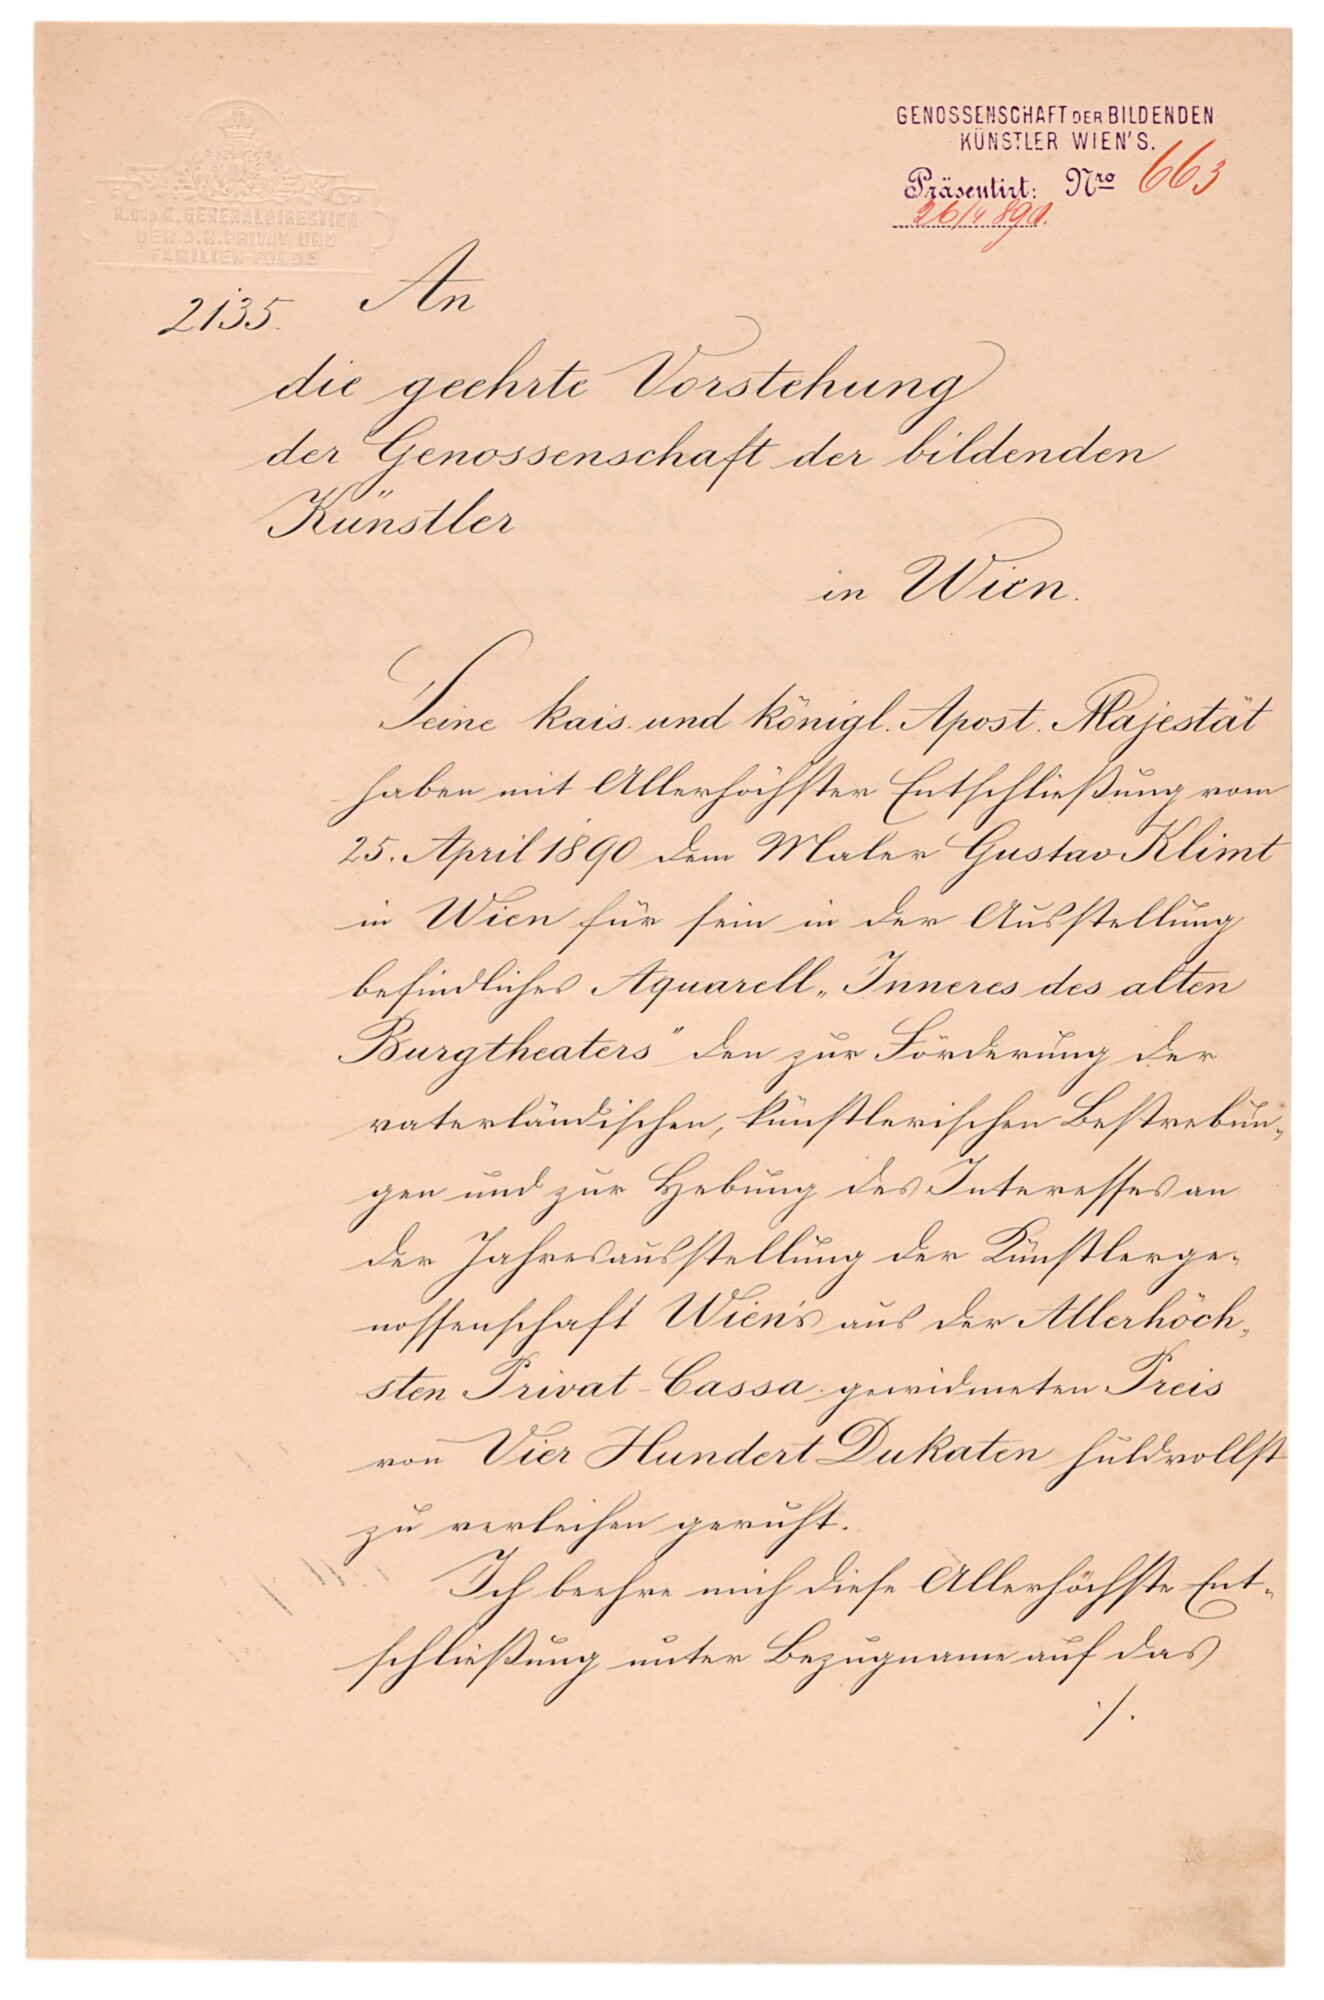 K. UND K. GENERALDIRECTION
DER A.H. PRIVAT UND
FAMILIEN-FONDE
GENOSSENSCHAFT DER BILDENDEN
KÜNSTLER WIEN'S.
Präsentirt: Nro 663
26/4 890.
2135.
An
die geehrte Vorstehung
der Genossenschaft der bildenden
Künstler
in Wien.
Seine kais. und königl. Apost. Majestät
haben mit Allerhöchster Entschließung vom
25. April 1890 dem Maler Gustav Klimt
in Wien für sein in der Ausstellung
befindliches Aquarell „Inneres des alten
Burgtheaters" den zur Förderung der
vaterländischen, künstlerischen Bestrebun-
gen und zur Hebung des Interesses an
der Jahresausstellung der Künstlerge-
nossenschaft Wien's aus der Allerhöch-
sten Privat-Cassa gewidmeten Preis
von Vier Hundert Dukaten huldvollst
zu verleihen geruht.
Ich beehre mich diese Allerhöchste Ent-
schließung unter Bezugname auf das
./.